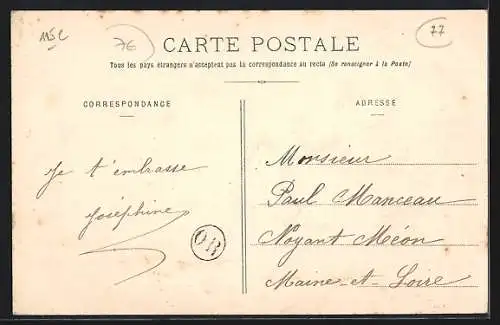 115c
76
77
CARTE POSTALE
Tous les pays étrangers n'acceptent pas la correspondance au recto (Se renseigner à la Poste)
CORRESPONDANCE
ADRESSE
Je t'embrasse
Joséphine
OR
Monsieur
Paul Manceau
Noyant Méon
Maine-et-Loire